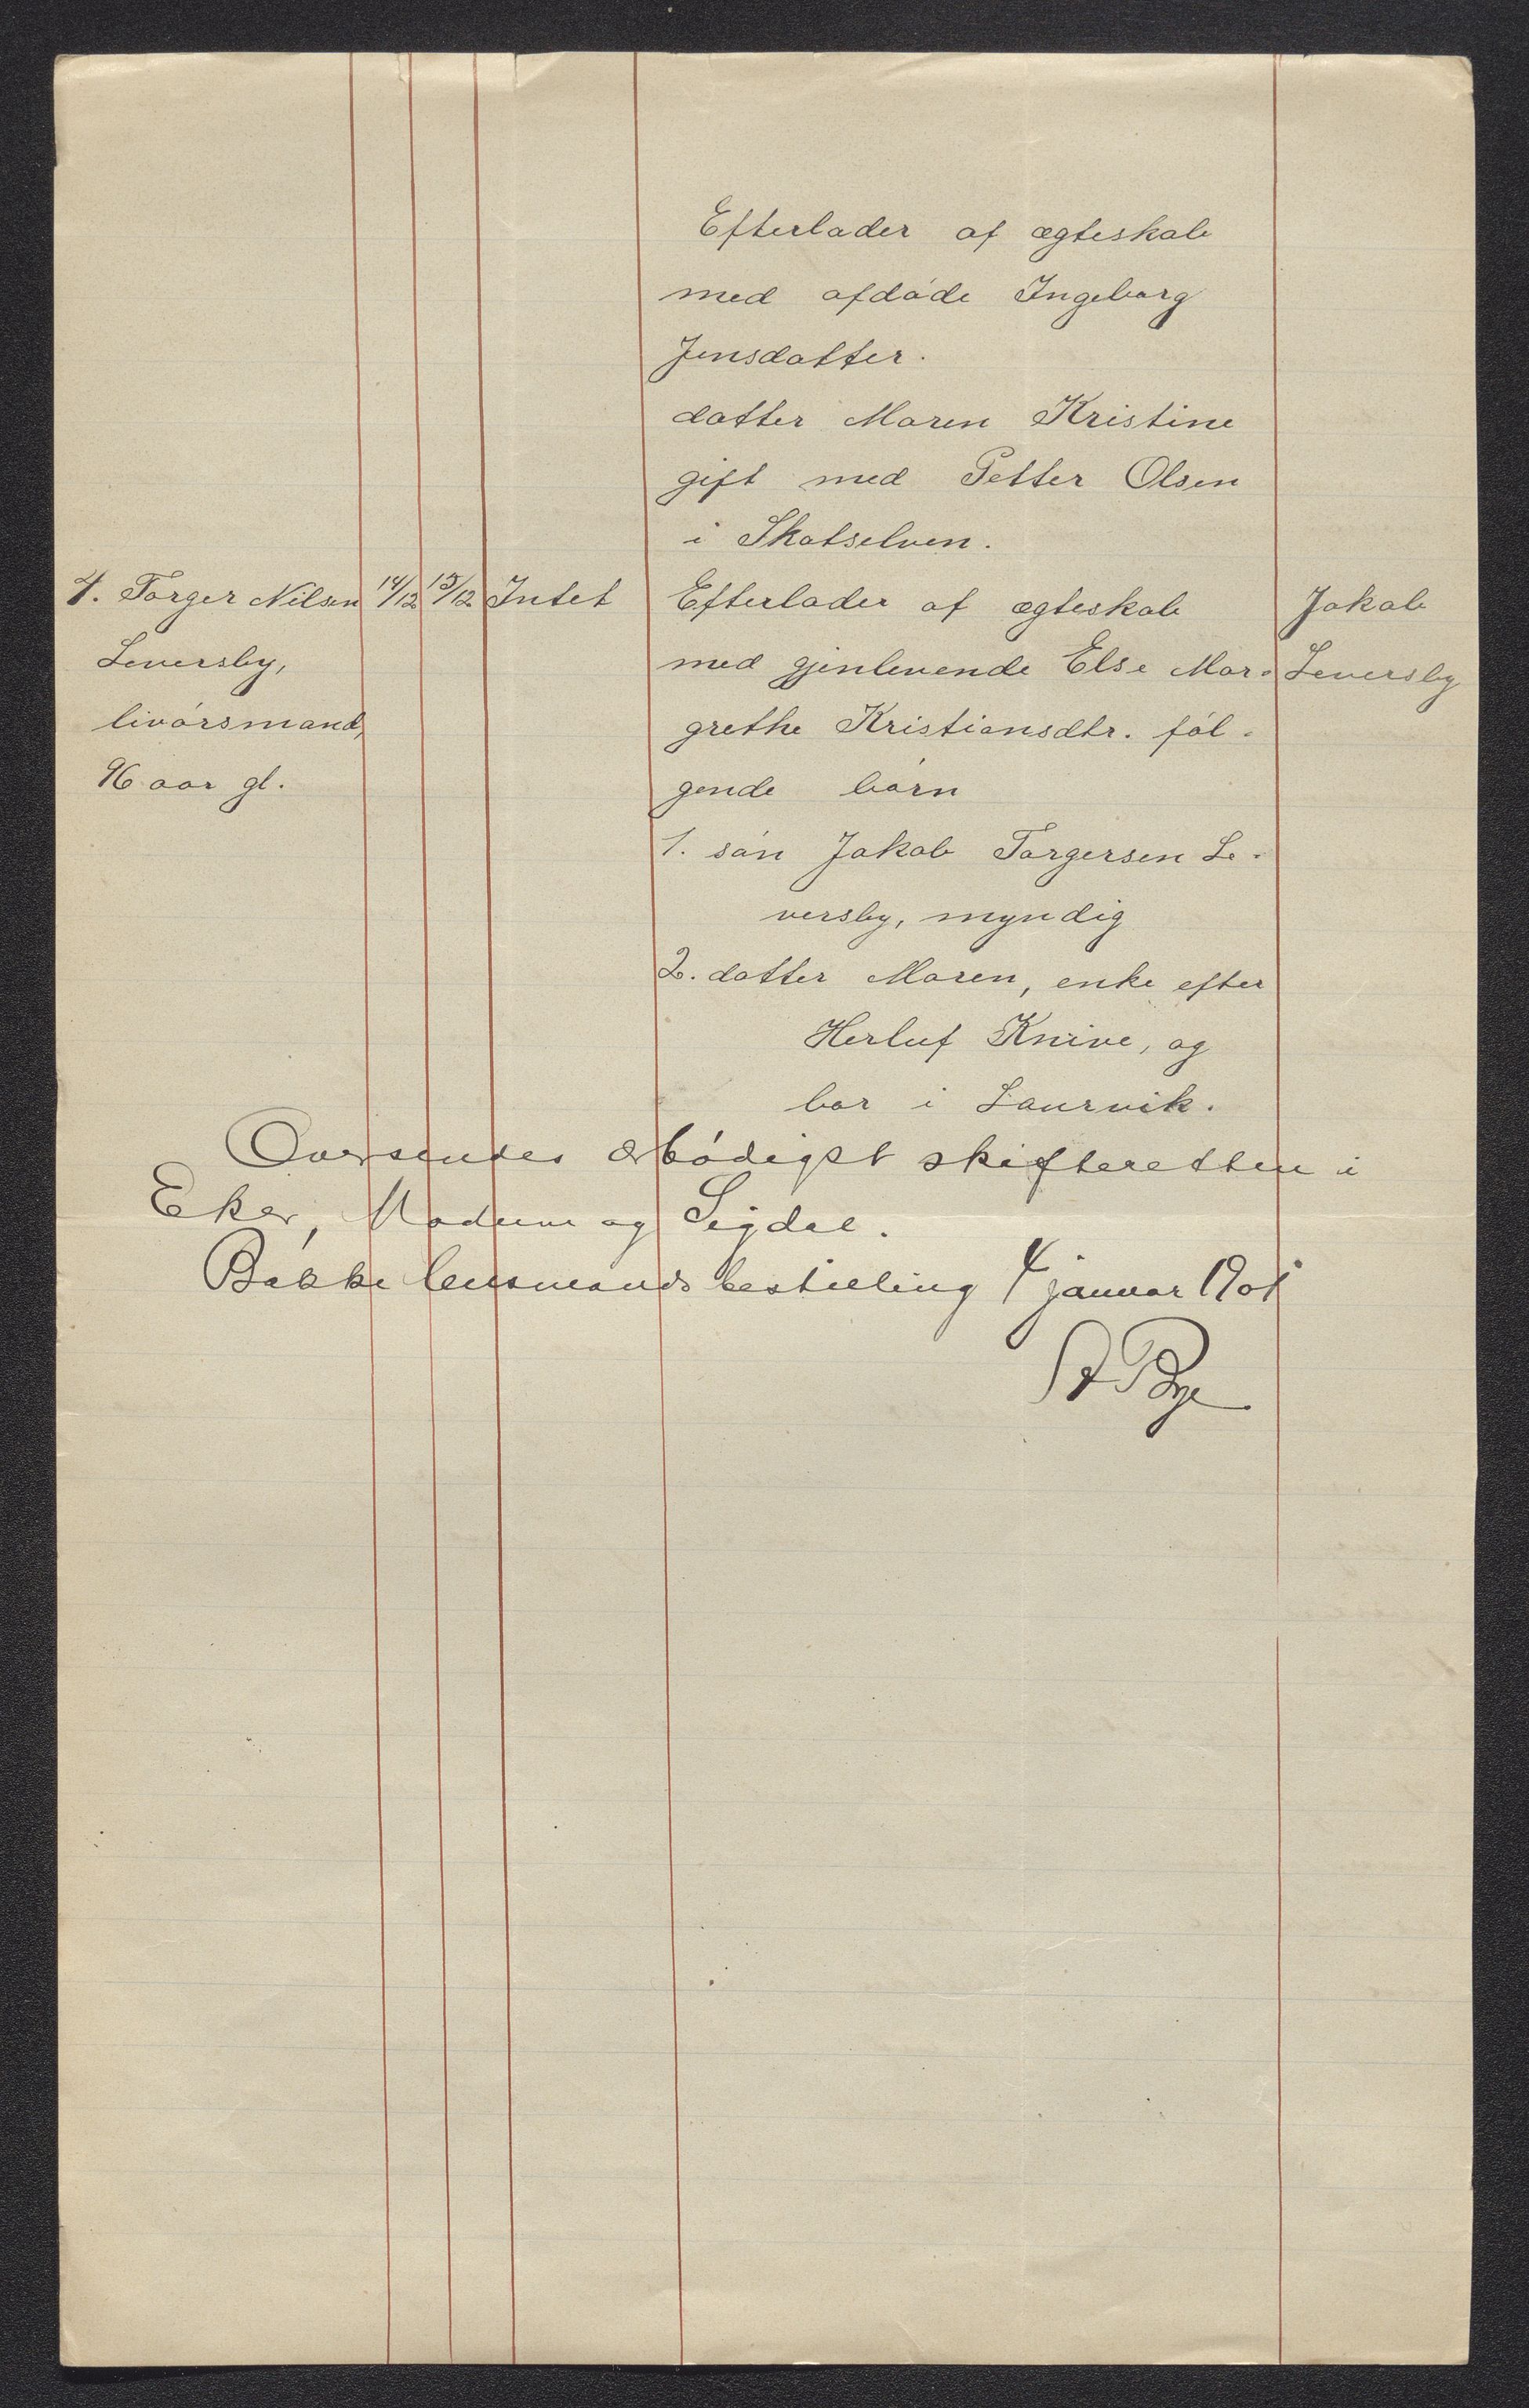 Efterlader af ægteskab
med afdøde Ingeborg
Jensdatter.
datter Maren Kristine
gift med Petter Olsen
i Skotselven.
4. Torger Nilsen 14/12 15/12 Intet Efterlader af ægteskab Jakob
Leversby, med gjenlevende Else Mar- Leversby
livørsmand, grethe Kristiansdtr. føl-
96 aar gl. gende børn
1. søn Jakob Torgersen Le-
versby, myndig
2. datter Maren, enke efter
Herluf Knive, og
bor i Laurvik.
Oversendes ærbødigst skifteretten i
Eker, Modum og Sigdal.
Bakke lensmandsbestilling 4 januar 1901
A Bye